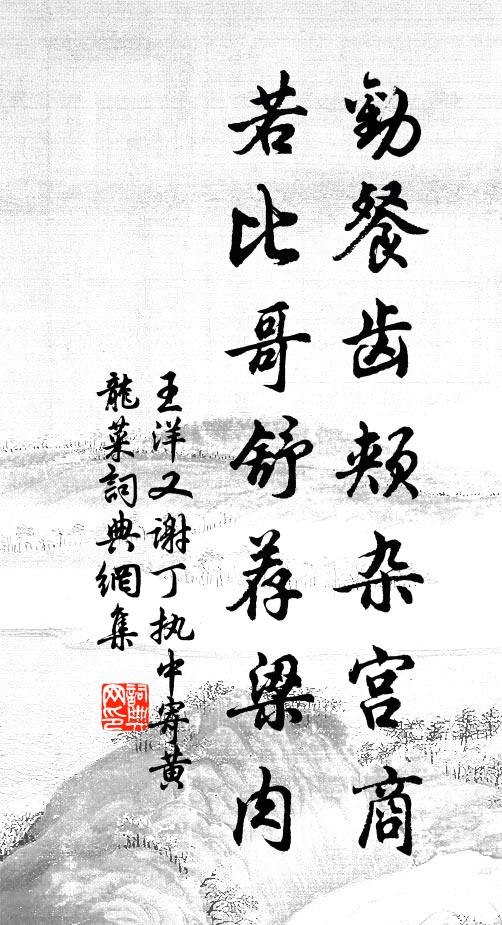 勸餐齿颊杂宫商
若比哥舒荐梁肉
王洋又谢丁执中寄黄
龍菜詞典網集
詞典网印